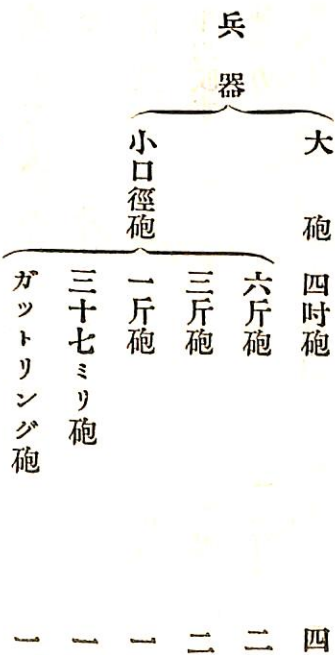 兵器
大砲 四吋砲 四
小口徑砲
六斤砲 二
三斤砲 二
一斤砲 一
三十七ミリ砲 一
ガットリング砲 一